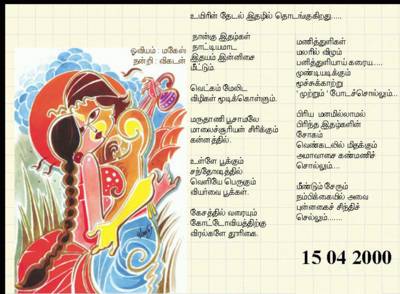 உயிரின் தேடல் இதழில் தொடங்குகிறது.....
ஓவியம் : மகேஸ்
நன்றி : விகடன்
நான்கு இதழ்கள்
நாட்டியமாட
இதயம் இன்னிசை
மீட்டும்.
வெட்கம் மேலிட
விழிகள் மூடிக்கொள்ளும்.
மருதாணி பூசாமலே
மாலைச்சூரியன் சிரிக்கும்
கன்னத்தில்.
உள்ளே பூக்கும்
சந்தோஷத்தில்
வெளியே பெருகும்
வியர்வை பூக்கள்.
கேசத்தில் வரையும்
கோட்டோவியத்திற்கு
விரல்களே தூரிகை.
மணித்துளிகள்
மலரில் விழும்
பனித்துளியாய் கரைய.....
முண்டியடிக்கும்
மூச்சுக்காற்று
'முற்றும்' போடச்சொல்லும்...
பிரிய மனமில்லாமல்
பிரிந்த இதழ்களின்
சோகம்
வெண்கடலில் மிதக்கும்
அமாவாசை கண்மணிச்
சொல்லும்....
மீண்டும் சேரும்
நம்பிக்கையில் அவை
புன்னகைச் சிந்திச்
செல்லும்.......
15 04 2000